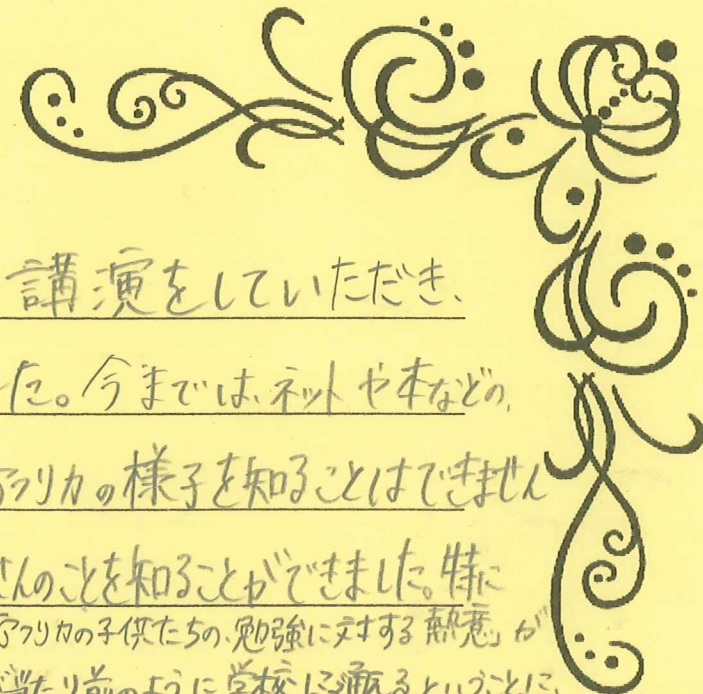 講演をしていただき、
た。今までは、ネットや本などの、
アフリカの様子を知ることはできません
さんのことを知ることができました。特に
アフリカの子供たちの、勉強に対する熱意」が
当たり前のように学校に通えるということに、